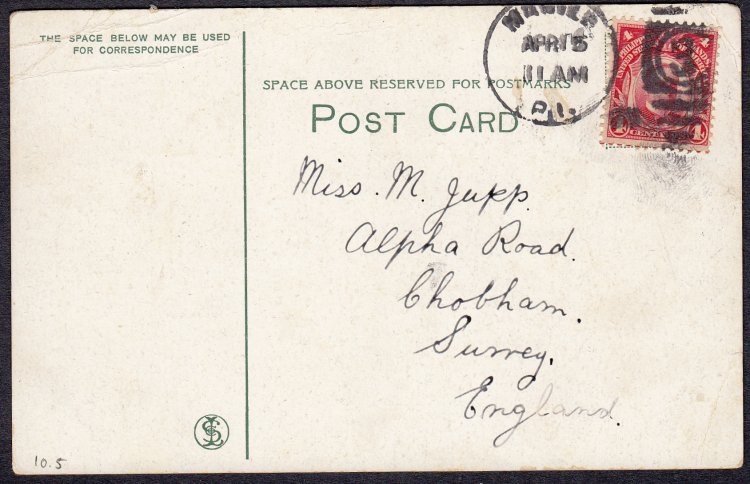 THE SPACE BELOW MAY BE USED
FOR CORRESPONDENCE
MANILA
APR 15
11 AM
P.I.
4 4
PHILIPPINE ISLANDS
UNITED STATES
4 CENTAVOS 4
SPACE ABOVE RESERVED FOR POSTMARKS
POST CARD
Miss. M. Jupp.
Alpha Road.
Chobham.
Surrey,
England.
10.5